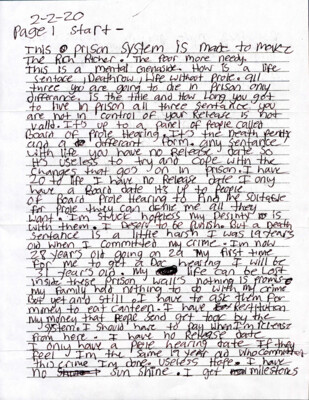 2-2-20
Page 1 Start -
This prison System is made to make
The Rich Richer. The Poor more needy.
This is a mental genaside. How is a life
Sentace, Deathrow, Life without Prole. all
three you are going to die in Prison only
difference. Is the title and How Long you get
to live in Prison all three Sentance you are
not in control of your Release is not
Valid. It's up to a panel of People called
Board of Prole Hearing. It's the Death
and a different form. any Sentance
with life you have no Release date so
its useless to try and cope with the
changes that go's on in Prison. I have
to life I have no Release date I only
have a Board date its up to People
of Board Prole Hearing to find me suitable
for Prole they can denie me all they
Want. I'm Stuck hopeless my Destiny is
with them. I Deserve to be Punish. But a Death
Sentance is a little harsh I was 19 years
old when I committed my crime. I'm now
28 years old going on 29 my first time
For me to get a Board hearing I will be
years old. my life can be Lost
inside these Prison wall's nothing is Promise
my family held nothing to do with my crime
But yet and still I have to ask them for
money to eat canteen. I have Restitution
my money that People send get took by the
System. I should have to pay when I'm release
from here. I have no Release date
I only have a Prole hearing date If they
feel Im the same 19 year old who committed
this crime Im done. useless Hope. I have
no Sun Shine. I get milestones